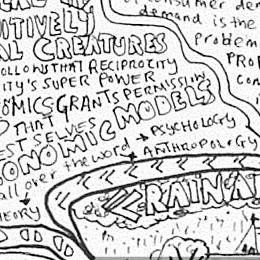 ITIVELY
AL CREATURES
OLLOWS THAT RECIPROCITY
ITY'S SUPER POWER
OMICS GRANTS PERMISSION
THAT
EST SELVES
ONOMIC MODELS
all over the word
→ PSYCHOLOGY
→ ANTHROPOLOGY
HEORY
onsumer dem
demand is the
problem
PROP
com
RAINFA